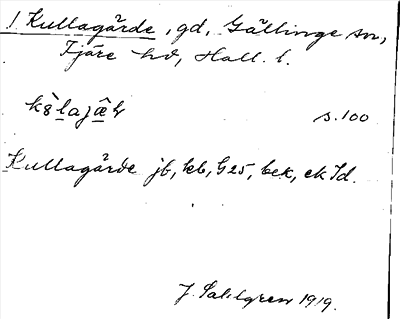 1. Kullagärde, gd, Gällinge sn,
Fjäre hd, Hall. l.
s. 100
Kullagärde jb, kb, G25, bek, ek Id.
J. Sahlgren 1919.